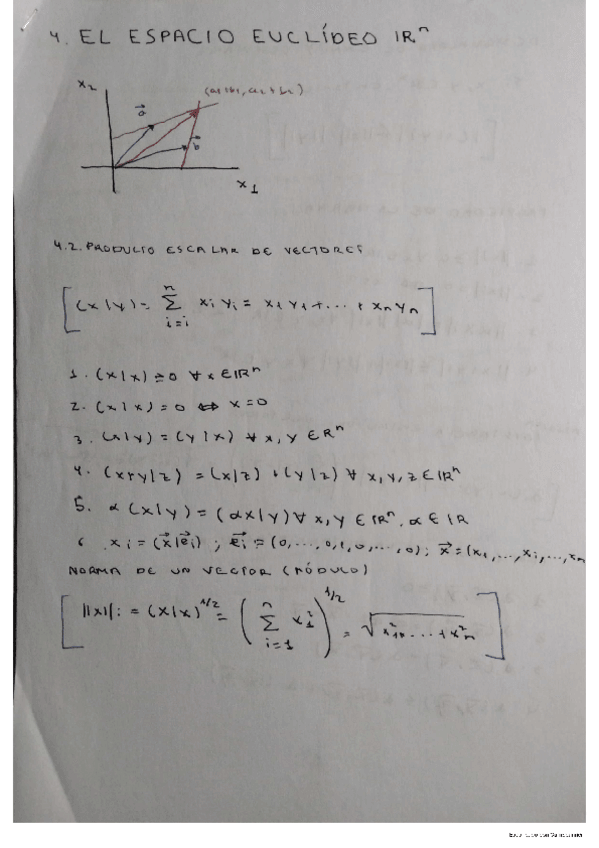 4. EL ESPACIO EUCLÍDEO IRⁿ
x₂
(a₁+b₁, a₂+b₂)
a⃗
b⃗
x₁
4.2. PRODUCTO ESCALAR DE VECTORES
[(x|y) = Σ_{i=i}^{n} xᵢ yᵢ = x₁ y₁ + ... + xₙ yₙ]
1. (x|x) ≥ 0 ∀ x ∈ IRⁿ
2. (x|x) = 0 ⇔ x = 0
3. (x|y) = (y|x) ∀ x, y ∈ Rⁿ
4. (x+y|z) = (x|z) + (y|z) ∀ x, y, z ∈ IRⁿ
5. α(x|y) = (αx|y) ∀ x, y ∈ IRⁿ, α ∈ IR
6 xᵢ = (x⃗|e⃗ᵢ) ; e⃗ᵢ = (0, ..., 0, 1, 0, ..., 0) ; x⃗ = (x₁, ..., xᵢ, ..., xₙ
NORMA DE UN VECTOR (MÓDULO)
[||x|| := (x|x)^{1/2} = (Σ_{i=1}^{n} x₁²)^{1/2} = √(x₁² + ... + x²ₙ)]